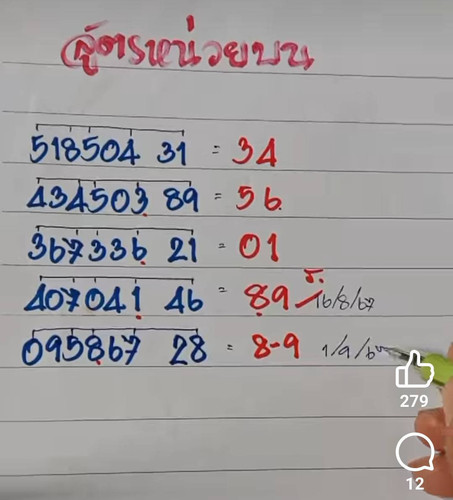 สูตรหน่วยบน
518504 31 = 34
434503 89 = 56
367336 21 = 01
407041 46 = 89 16/8/67
095867 28 = 8-9 1/9/6
279
12